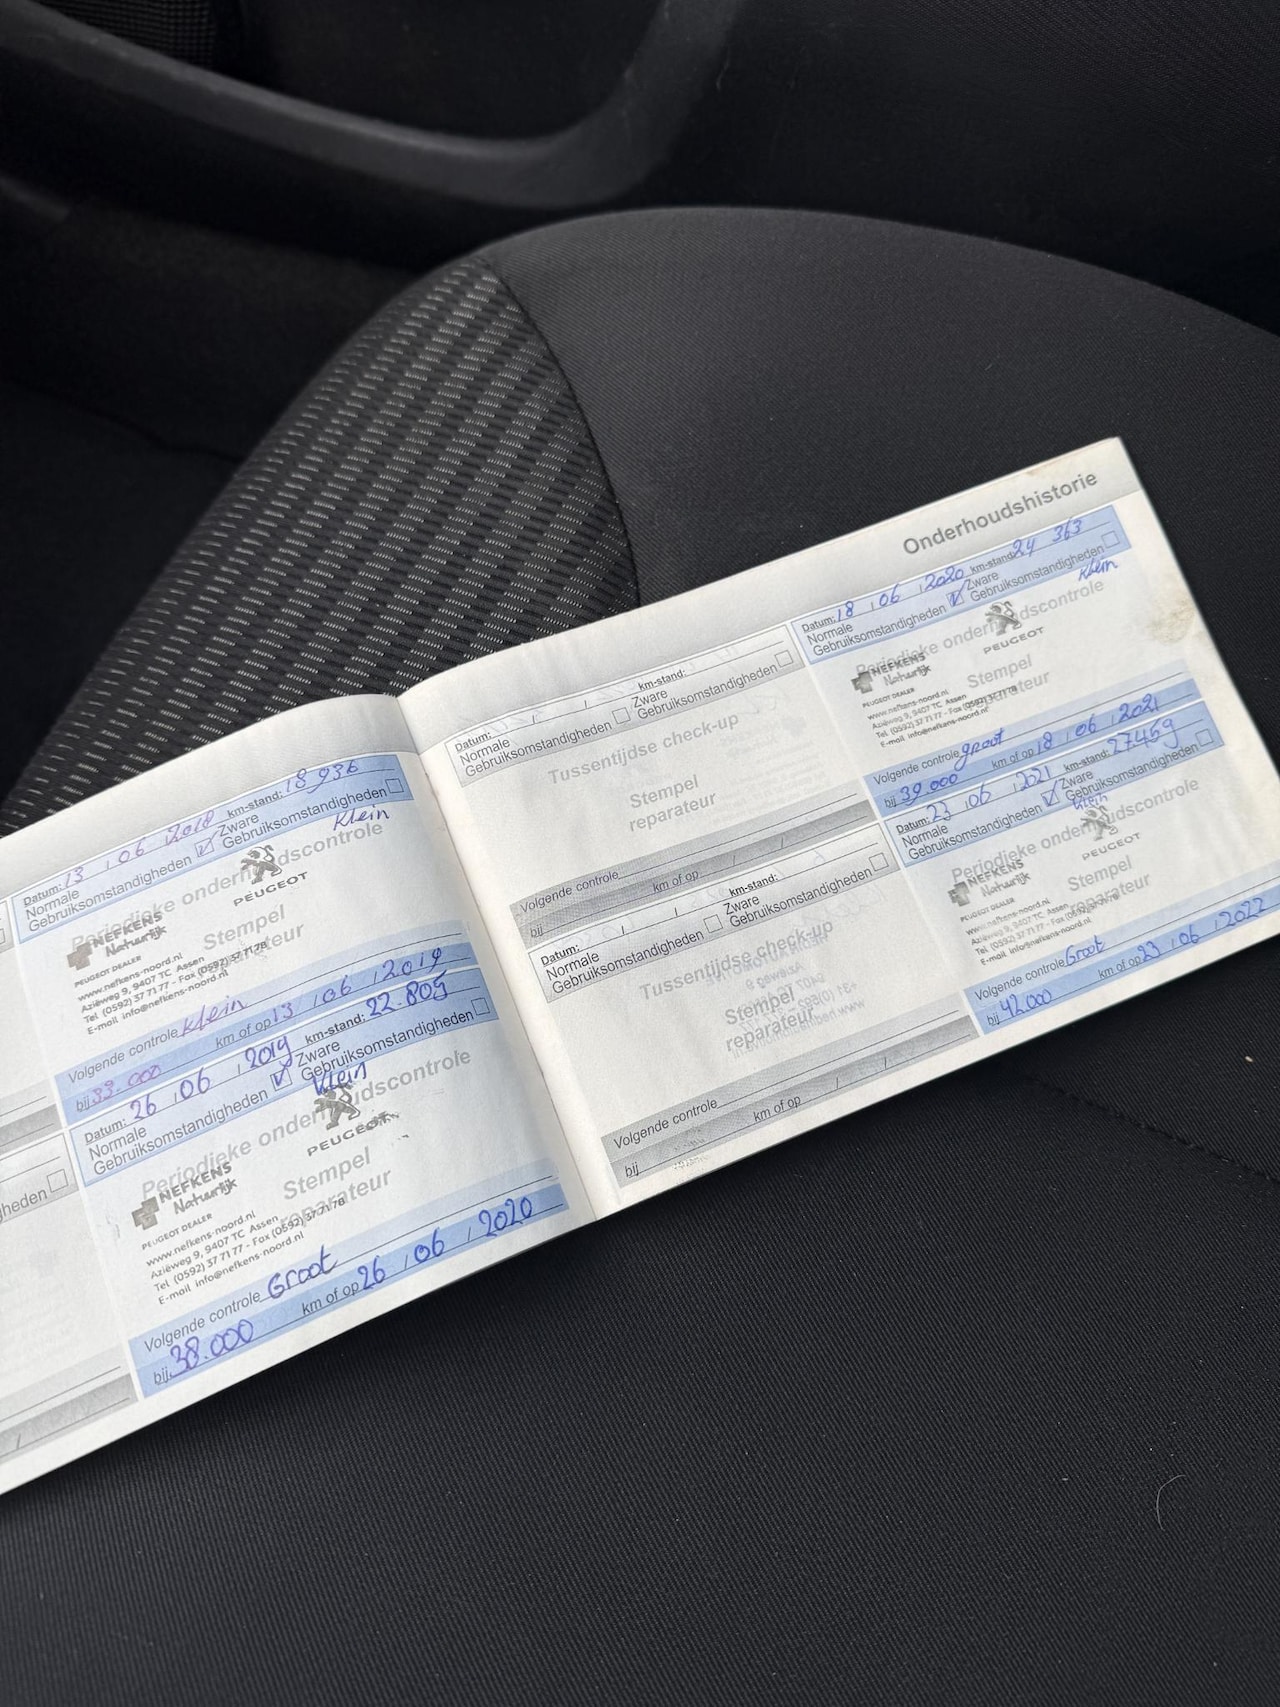 Datum: 13 / 06 / 2018 km-stand: 18 936
Normale Gebruiksomstandigheden Zware Gebruiksomstandigheden
Klein
Periodieke onderhoudscontrole
PEUGEOT
NEFKENS
Natuurlijk
Stempel
reparateur
PEUGEOT DEALER
www.nefkens-noord.nl
Aziëweg 9, 9407 TC Assen
Tel (0592) 37 71 77 - Fax (0592) 37 71 78
E-mail info@nefkens-noord.nl
Volgende controle Klein
bij 33.000 km of op 13 / 06 / 2019
Datum: 26 / 06 / 2019 km-stand: 22.805
Normale Gebruiksomstandigheden Zware Gebruiksomstandigheden
Klein
Periodieke onderhoudscontrole
PEUGEOT
NEFKENS
Natuurlijk
Stempel
reparateur
PEUGEOT DEALER
www.nefkens-noord.nl
Aziëweg 9, 9407 TC Assen
Tel (0592) 37 71 77 - Fax (0592) 37 71 78
E-mail info@nefkens-noord.nl
Volgende controle Groot
bij 38.000 km of op 26 / 06 / 2020
Onderhoudshistorie
Datum: / / km-stand:
Normale Gebruiksomstandigheden Zware Gebruiksomstandigheden
Tussentijdse check-up
Stempel
reparateur
Volgende controle
bij km of op / /
Datum: / / km-stand:
Normale Gebruiksomstandigheden Zware Gebruiksomstandigheden
Tussentijdse check-up
Stempel
reparateur
Volgende controle
bij km of op / /
Datum: 18 / 06 / 2020 km-stand: 24 363
Normale Gebruiksomstandigheden Zware Gebruiksomstandigheden
Klein
Periodieke onderhoudscontrole
PEUGEOT
NEFKENS
Natuurlijk
Stempel
reparateur
PEUGEOT DEALER
www.nefkens-noord.nl
Aziëweg 9, 9407 TC Assen
Tel (0592) 37 71 77 - Fax (0592) 37 71 78
E-mail info@nefkens-noord.nl
Volgende controle groot
bij 39.000 km of op 18 / 06 / 2021
Datum: 23 / 06 / 2021 km-stand: 27.469
Normale Gebruiksomstandigheden Zware Gebruiksomstandigheden
Klein
Periodieke onderhoudscontrole
PEUGEOT
NEFKENS
Natuurlijk
Stempel
reparateur
PEUGEOT DEALER
www.nefkens-noord.nl
Aziëweg 9, 9407 TC Assen
Tel (0592) 37 71 77 - Fax (0592) 37 71 78
E-mail info@nefkens-noord.nl
Volgende controle Groot
bij 42.000 km of op 23 / 06 / 2022